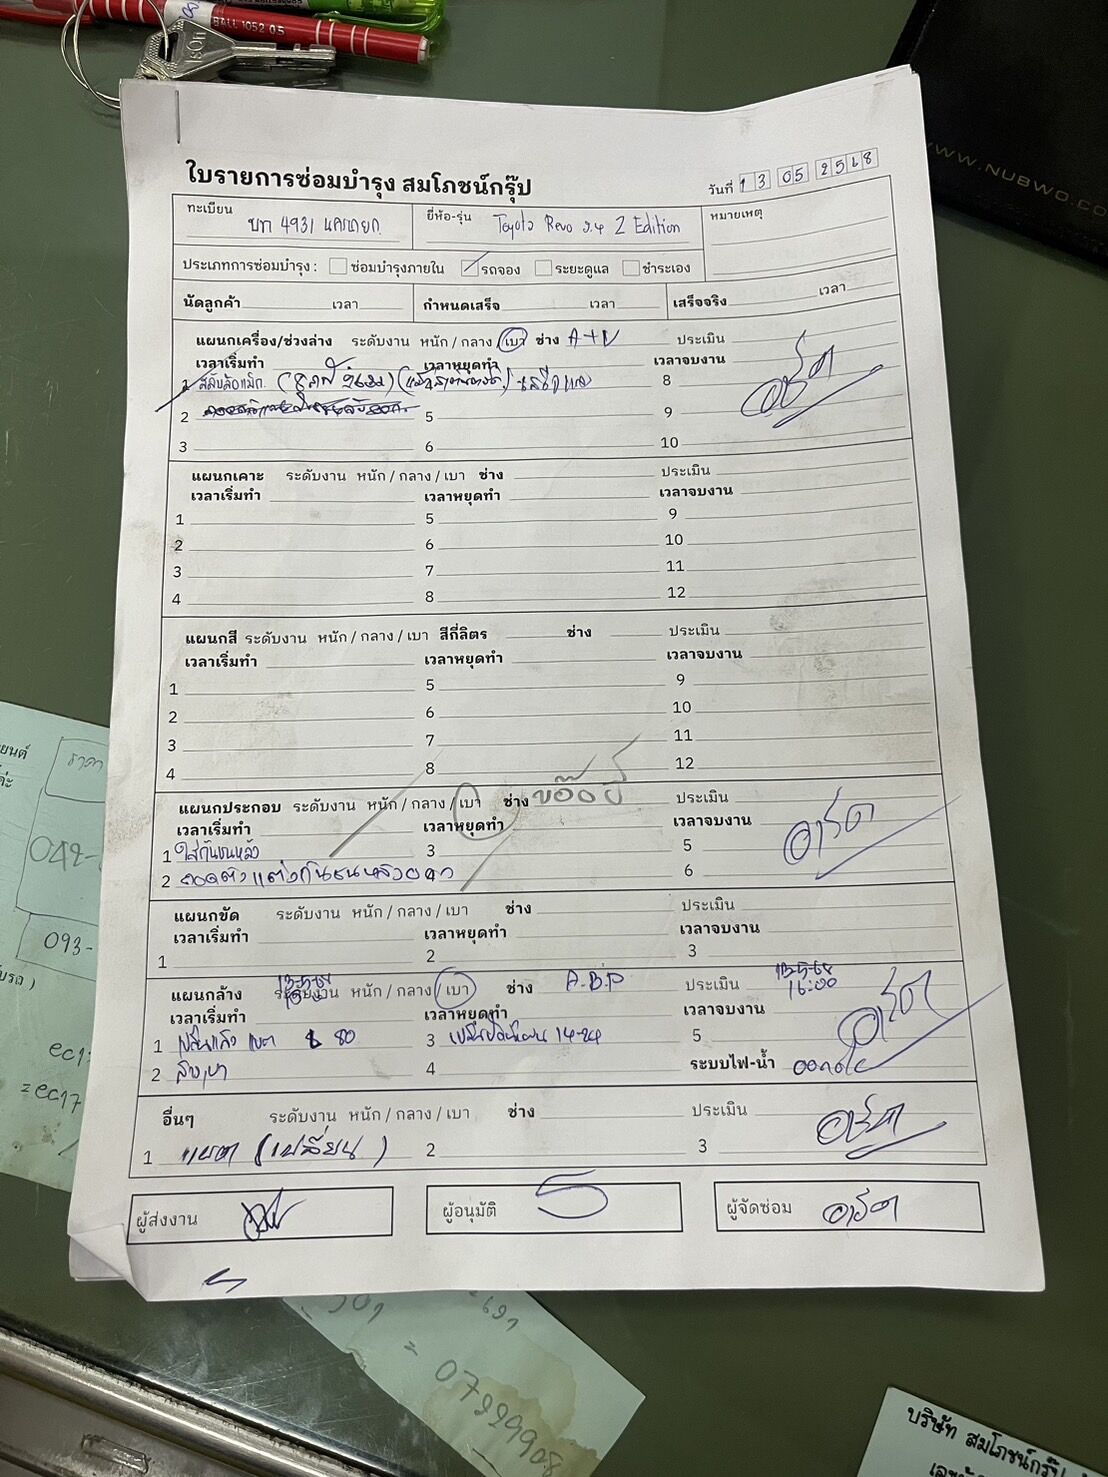 BALL 1052 0.5
ISON
WWW.NUBWO.CO
ใบรายการซ่อมบำรุง สมโภชน์กรุ๊ป
วันที่ 13 05 2568
ทะเบียน บท 4931 นครนายก
ยี่ห้อ-รุ่น Toyota Revo 2.4 Z Edition
หมายเหตุ
ประเภทการซ่อมบำรุง : ซ่อมบำรุงภายใน รถจอง ระยะดูแล ชำระเอง
นัดลูกค้า เวลา กำหนดเสร็จ เวลา เสร็จจริง เวลา
แผนกเครื่อง/ช่วงล่าง ระดับงาน หนัก / กลาง / เบา ช่าง A+V ประเมิน
เวลาเริ่มทำ เวลาหยุดทำ เวลาจบงาน
1 สลับล้อแม็ก 8
2 5 9
3 6 10
แผนกเคาะ ระดับงาน หนัก / กลาง / เบา ช่าง ประเมิน
เวลาเริ่มทำ เวลาหยุดทำ เวลาจบงาน
1 5 9
2 6 10
3 7 11
4 8 12
แผนกสี ระดับงาน หนัก / กลาง / เบา สีกี่ลิตร ช่าง ประเมิน
เวลาเริ่มทำ เวลาหยุดทำ เวลาจบงาน
1 5 9
2 6 10
3 7 11
4 8 12
แผนกประกอบ ระดับงาน หนัก / กลาง / เบา ช่าง ประเมิน
เวลาเริ่มทำ เวลาหยุดทำ เวลาจบงาน
1 ใส่กันชนหลัง 3 5
2 ถอดตัวแต่งกันชนหลังออก 6
แผนกขัด ระดับงาน หนัก / กลาง / เบา ช่าง ประเมิน
เวลาเริ่มทำ เวลาหยุดทำ เวลาจบงาน
1 2 3
แผนกล้าง 13-5-68 ระดับงาน หนัก / กลาง / เบา ช่าง A.B.P ประเมิน 13-5-68
เวลาเริ่มทำ เวลาหยุดทำ เวลาจบงาน 16:00
1 80 3 14-24 5
2 ล้างเบา 4 ระบบไฟ-น้ำ
อื่นๆ ระดับงาน หนัก / กลาง / เบา ช่าง ประเมิน
1 แบต (เปลี่ยน) 2 3
ผู้ส่งงาน ผู้อนุมัติ ผู้จัดซ่อม อาร์ต
ราคา
042-
093-
= ec17
07299908
บริษัท สมโภชน์กรุ๊ป